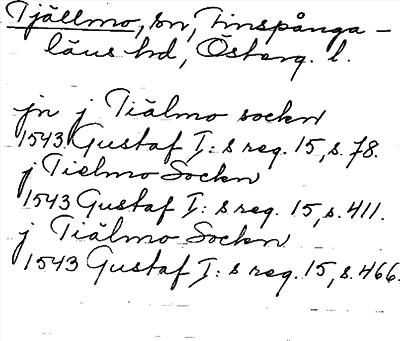 Tjällmo, sn, Finspånga-
läns hd, Österg. l.
jn j Tiälmo sockn
1543 Gustaf I: s reg. 15, s. 78.
j Tielmo Sockn
1543 Gustaf I: s reg. 15, s. 411.
j Tiälmo Sockn
1543 Gustaf I: s reg. 15, s. 466.